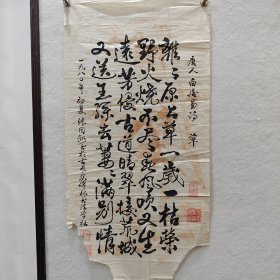 唐人白居易诗 草
離離原上草一歲一枯榮
野火燒不尽春風吹又生
遠芳侵古道晴翠接荒城
又送王孫去萋萋滿別情
一九八〇年初夏